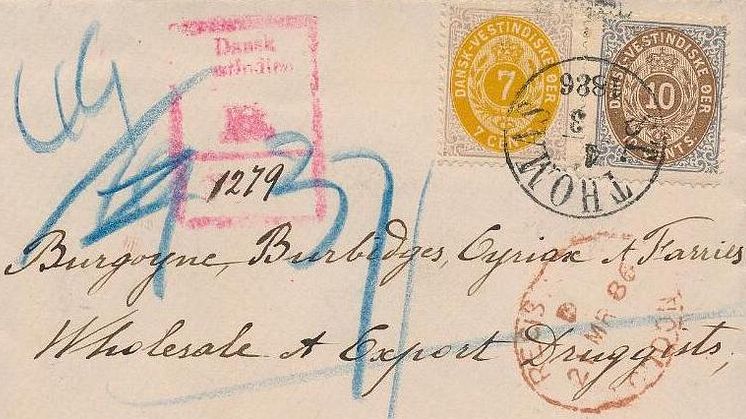 Dansk
DANSK-VESTINDISKE ØER
7
7 CENTS
DANSK-VESTINDISKE ØER
10
CENTS
ST. THOMAS
4 3
1886
1279
Burgoyne, Burbidges, Cyriax & Farries
Wholesale & Export Druggists,
REGIS
LONDON
MR 86